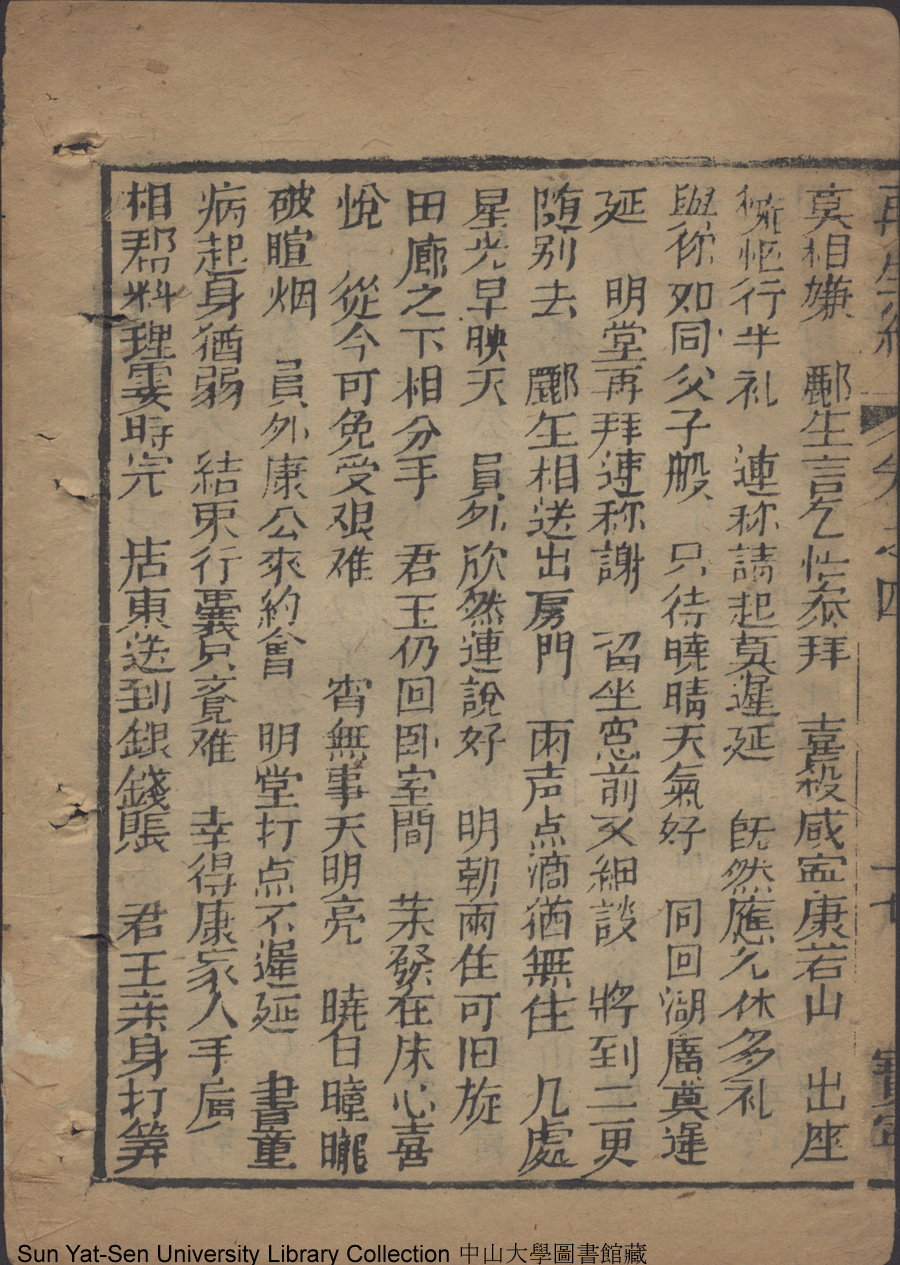 再生緣 卷之四 十七 寧
莫相嫌 酈生言乞忙叅拜 喜殺咸寍康若山 出座
攙扼行半礼 連称請起莫遲延 旣然應允休多礼
與你如同父子般 只待曉晴天氣好 同回湖廣莫遲
延 明堂再拜連称謝 畄坐窓前又細談 將到二更
随别去 酈生相送出房門 雨声点滴猶無住 几處
星光早映天 員外欣然連說好 明朝雨住可旧旋
田廊之下相分手 君玉仍回卧室間 茉發在床心喜
悅 從今可免受艰难 宵無事天明亮 曉日曈曨
破暄烟 員外康公來約會 明堂打点不遲延 書童
病起身猶弱 結束行囊只竟难 幸得康家人手廣
相帮料理霎時完 店東送到銀錢賬 君王亲身打筭
Sun Yat-Sen University Library Collection 中山大學圖書館藏